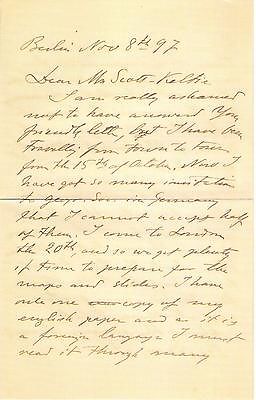 Berlin Nov 8th 97.
Dear Mr Scott-Keltie
I am really ashamed
not to have answered your
friendly letter but I have been
travelling from town to town
from the 15th of October. Now I
have got so many invitation
to geogr. Soc. in Germany
that I cannot accept half
of them. I come to London
the 20th, and so we get plenty
of time to prepare for the
maps and slides. I have
only one copy of my
english paper and as it is
a foreign language I must
read it through many